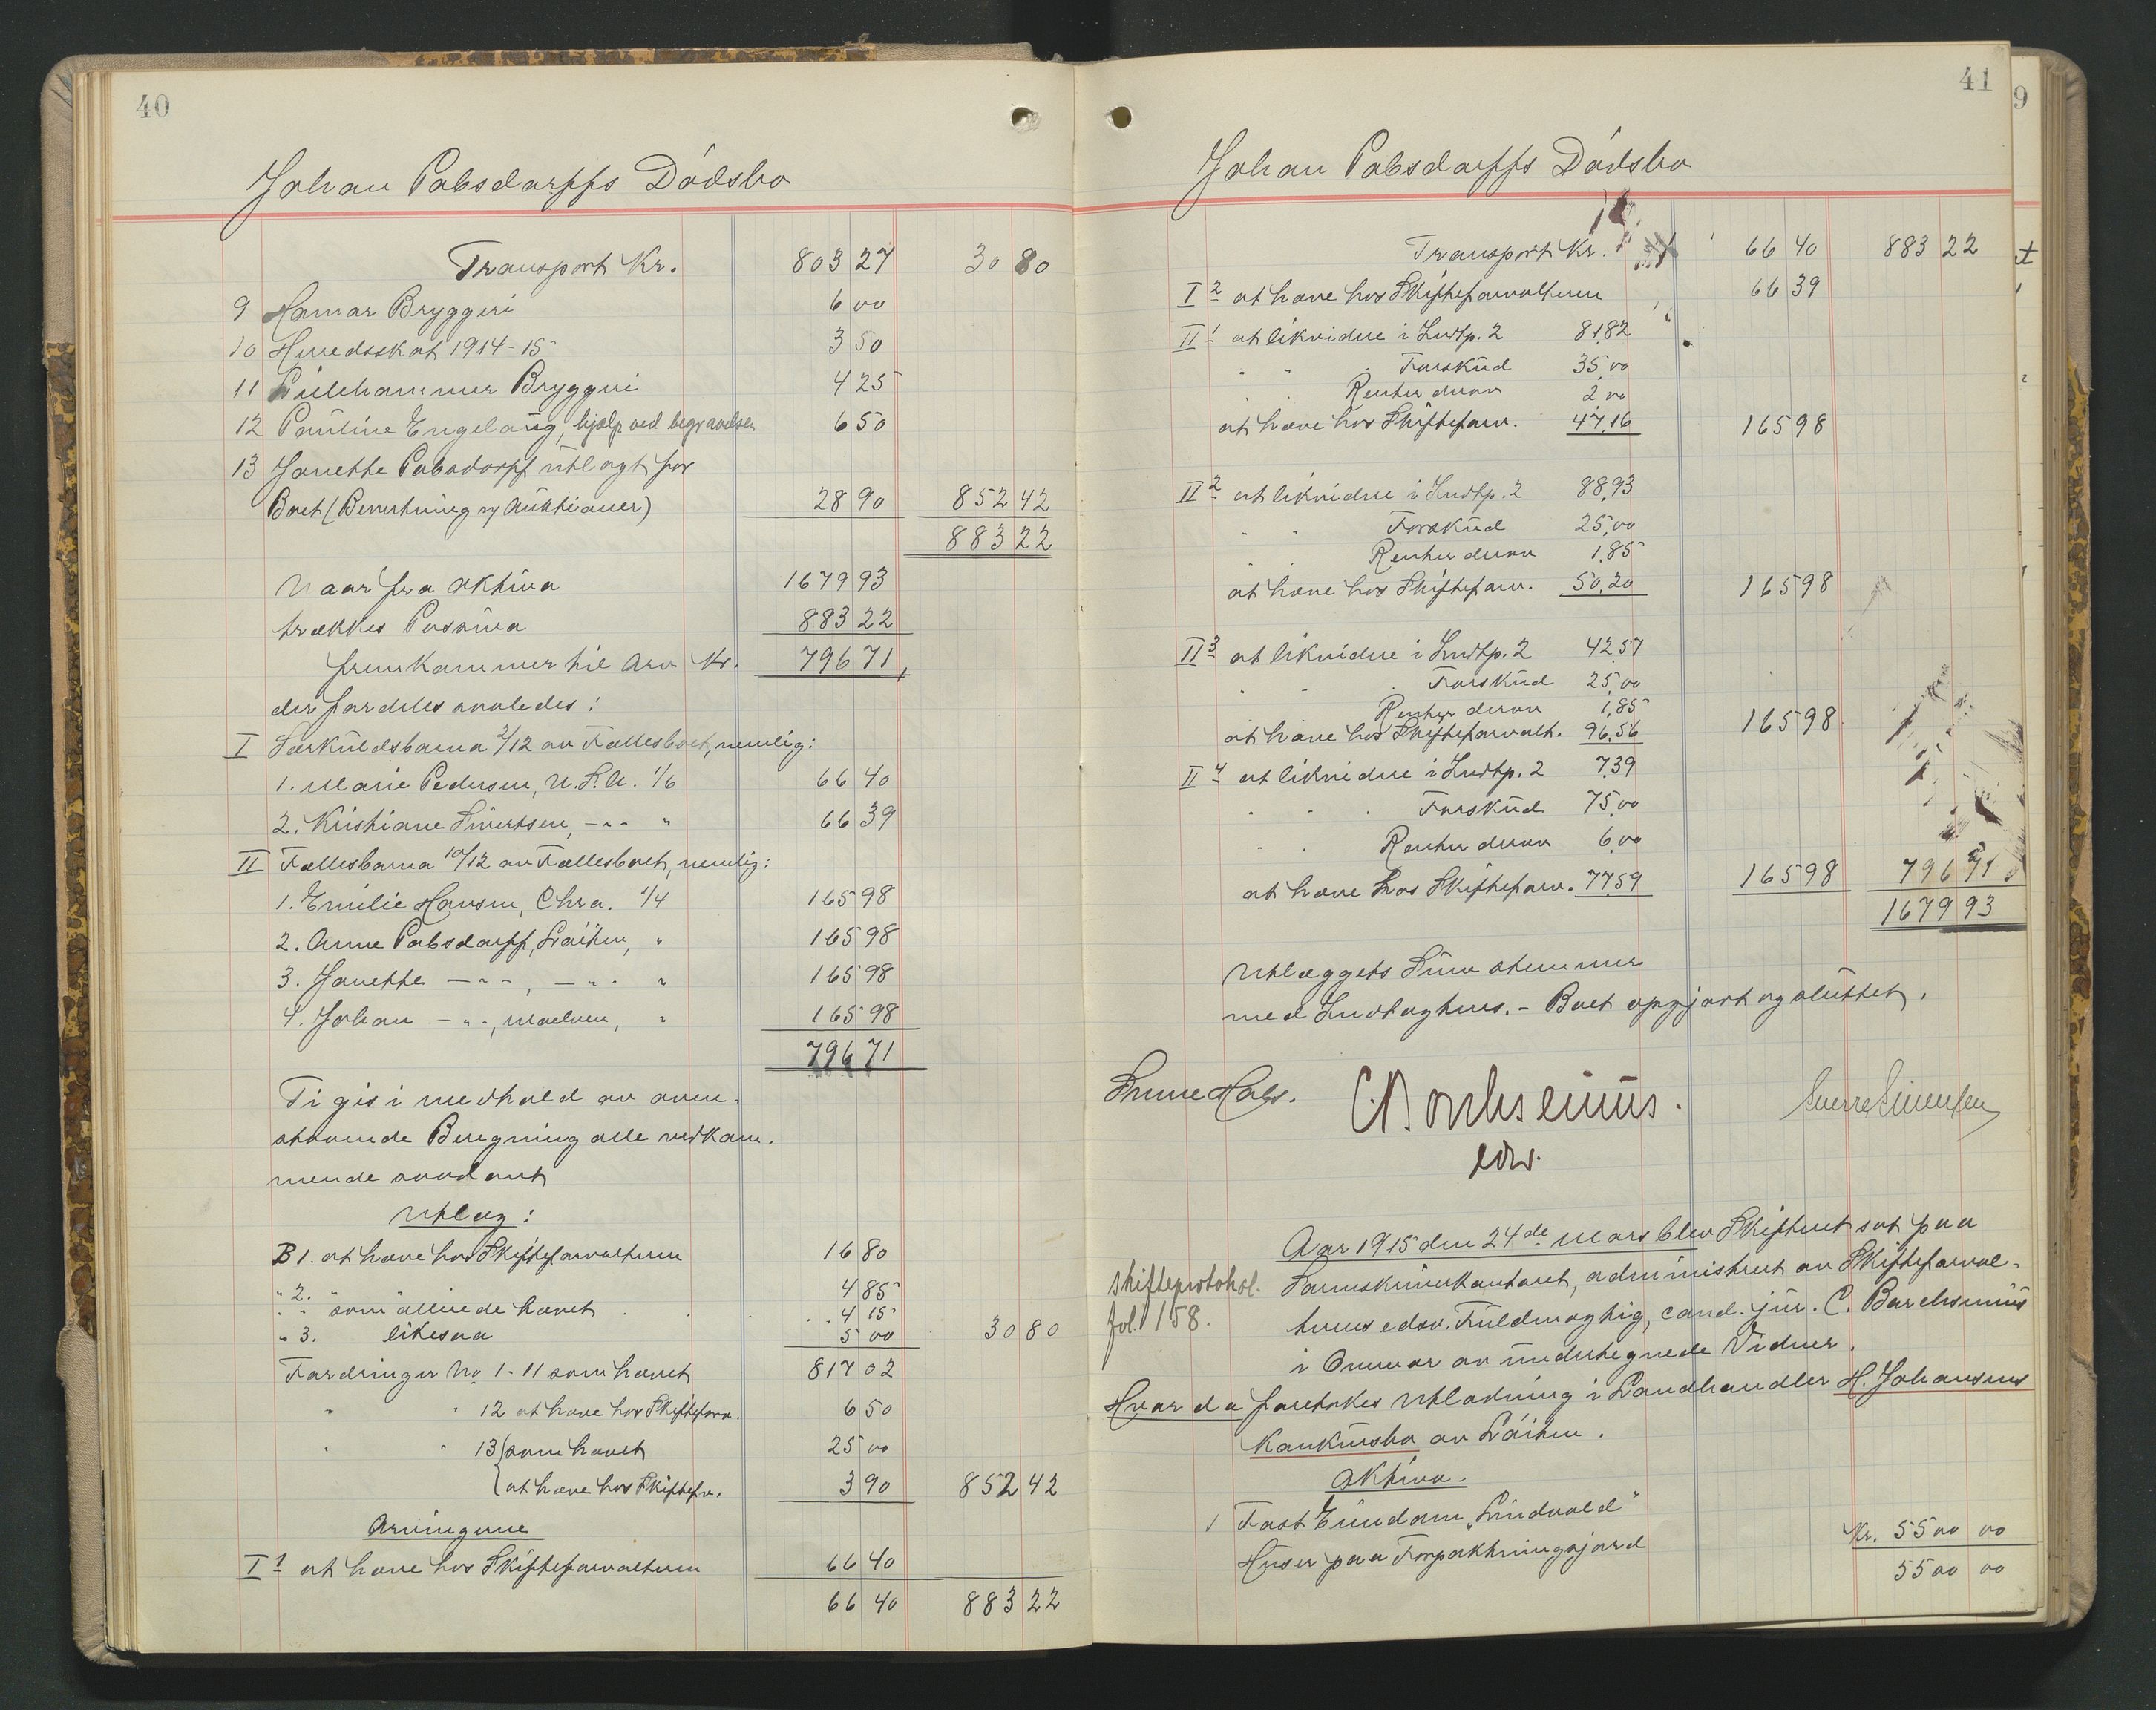 40
Johan Pabsdorffs Dödsbo
Transport Kr. 803 27 30 80
9 Hamar Bryggeri 6 00
10 Herredsskat 1914-15 3 50
11 Lillehammer Bryggeri 4 25
12 Pauline Engelaug, hjælp ved begravelsen 6 50
13 Janette Pabsdorff utlagt for
Boet (Bevertning og Auktioner) 28 90 852 42
883 22
Naar fra Aktiva 1679 93
trækkes Passiva 883 22
fremkommer til Arv Kr. 796 71
der fordeles saaledes:
I Særkuldsbarna 2/12 av Fællesboet, nemlig:
1. Marie Pedersen, U.S.A. 1/6 66 40
2. Kristiane Sivertsen, -"- " 66 39
II Fællesbarna 10/12 av Fællesboet, nemlig:
1. Emilie Hansen, Chra. 1/4 165 98
2. Anne Pabsdorff, Löiten, " 165 98
3. Janette -"-, -"- " 165 98
4. Johan -"-, Moelven, " 165 98
796 71
Ti gis i medhold av oven-
staaende Beregning alle vedkom-
mende saadant
Utlæg:
B 1. at hæve hos Skifteforvalteren 16 80
" 2. " 4 85
" " som allerede hævet 4 15
" 3. likesaa 5 00 30 80
Fordringer No 1-11 som hævet 817 02
" " 12 at hæve hos Skifteforv. 6 50
" " 13 { som hævet 25 00
{ at hæve hos Skiftefv. 3 90 852 42
Arvingene
I 1 at hæve hos Skifteforvalteren 66 40
66 40 883 22
41
Johan Pabsdorffs Dödsbo
Transport Kr. 66 40 883 22
I 2 at hæve hos Skifteforvalteren 66 39
II 1 at likvidere i Indtp. 2 81,82
" " Forskud 35,00
" " Renter derav 2,00
at hæve hos Skifteforv. 47,16 165 98
II 2 at likvidere i Indtp. 2 88,93
" " Forskud 25,00
" " Renter derav 1,85
at hæve hos Skifteforv. 50,20 165 98
II 3 at likvidere i Indtp. 2 42,57
" " Forskud 25,00
Renter derav 1,85
at hæve hos Skifteforvalt. 96,56 165 98
II 4 at likvidere i Indtp. 2 7,39
" " Forskud 75,00
" " Renter derav 6,00
at hæve hos Skifteforv. 77,59 165 98 796 71
1679 93
Utlæggets Sum stemmer
med Indtægtens. - Boet opgjort og sluttet.
C. Borchsenius.
edsv.
Aar 1915 den 24de Mars blev Skifteret sat paa
Skifteprotokol. Sorenskriverkontoret, administrert av Skifteforval-
fol. 158. terens edsv. Fuldmægtig, cand. jur. C. Borchsenius
i Overvær av undertegnede Vidner.
Hvorda foretokes Utlodning i Landhandler H. Johansens
Konkursbo av Löiten.
Aktiva.
1 Fast Eiendom "Lindvold"
Huser paa Forpaktningsjord Kr. 5500 00
5500 00